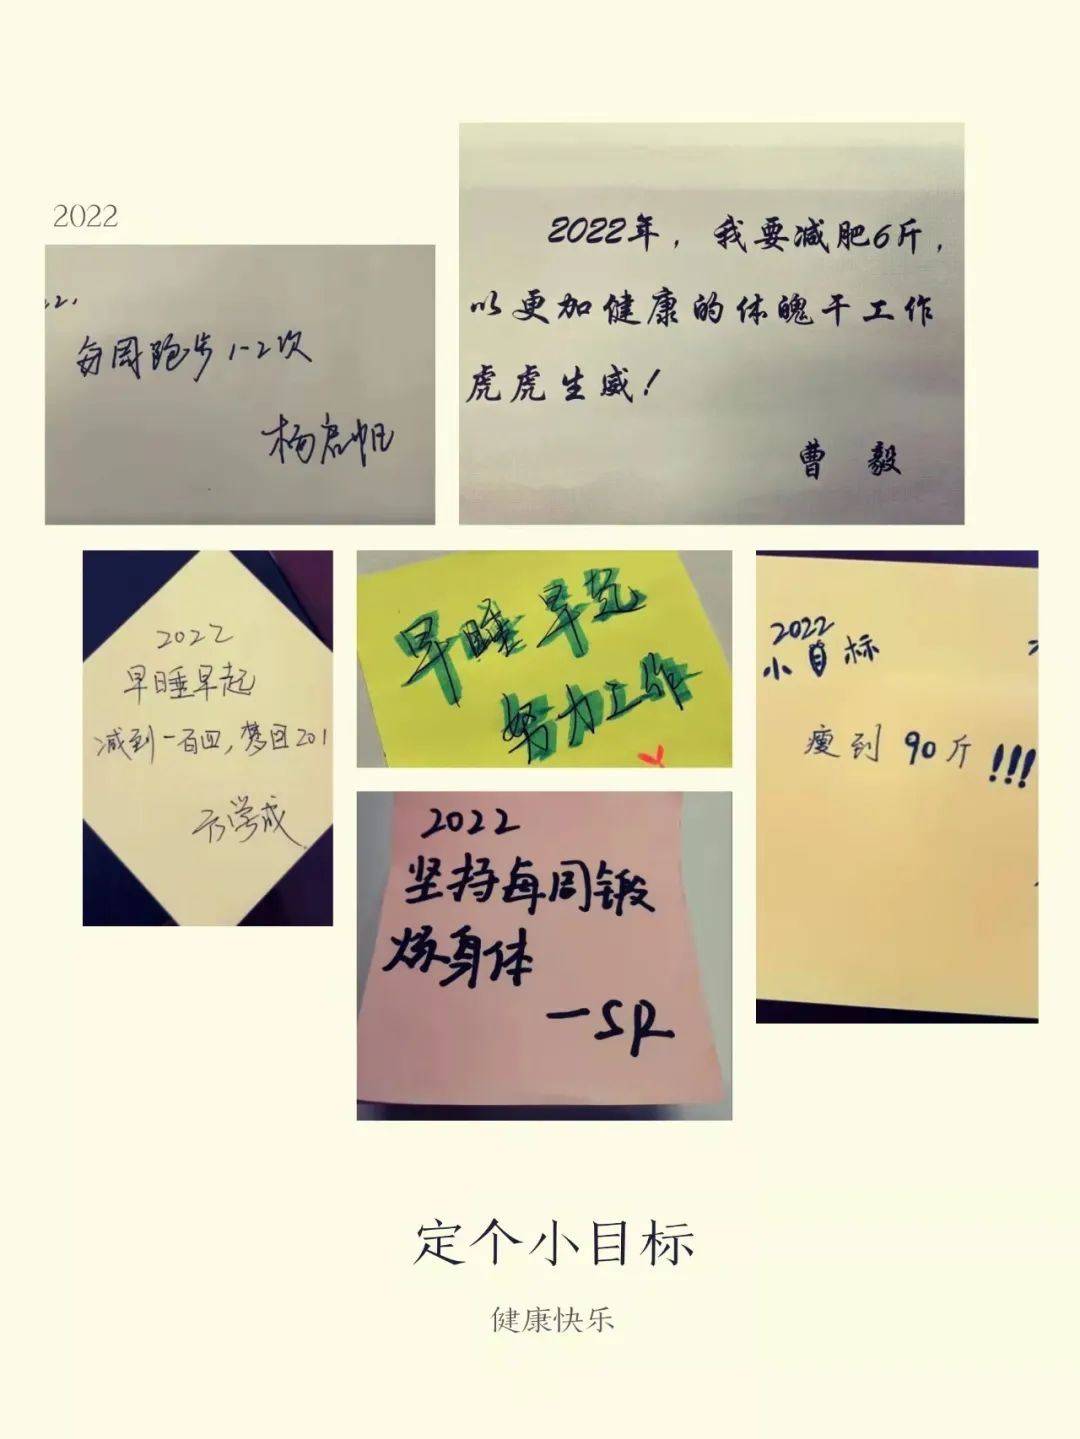 2022
每周跑步1-2次
2022年，我要减肥6斤，
以更加健康的体魄干工作
虎虎生威！
曹 毅
2022
早睡早起
减到一百四，梦回201
早睡早起
努力工作
2022
小目标
瘦到90斤!!!
2022
坚持每周锻
炼身体
—SR
定个小目标
健康快乐